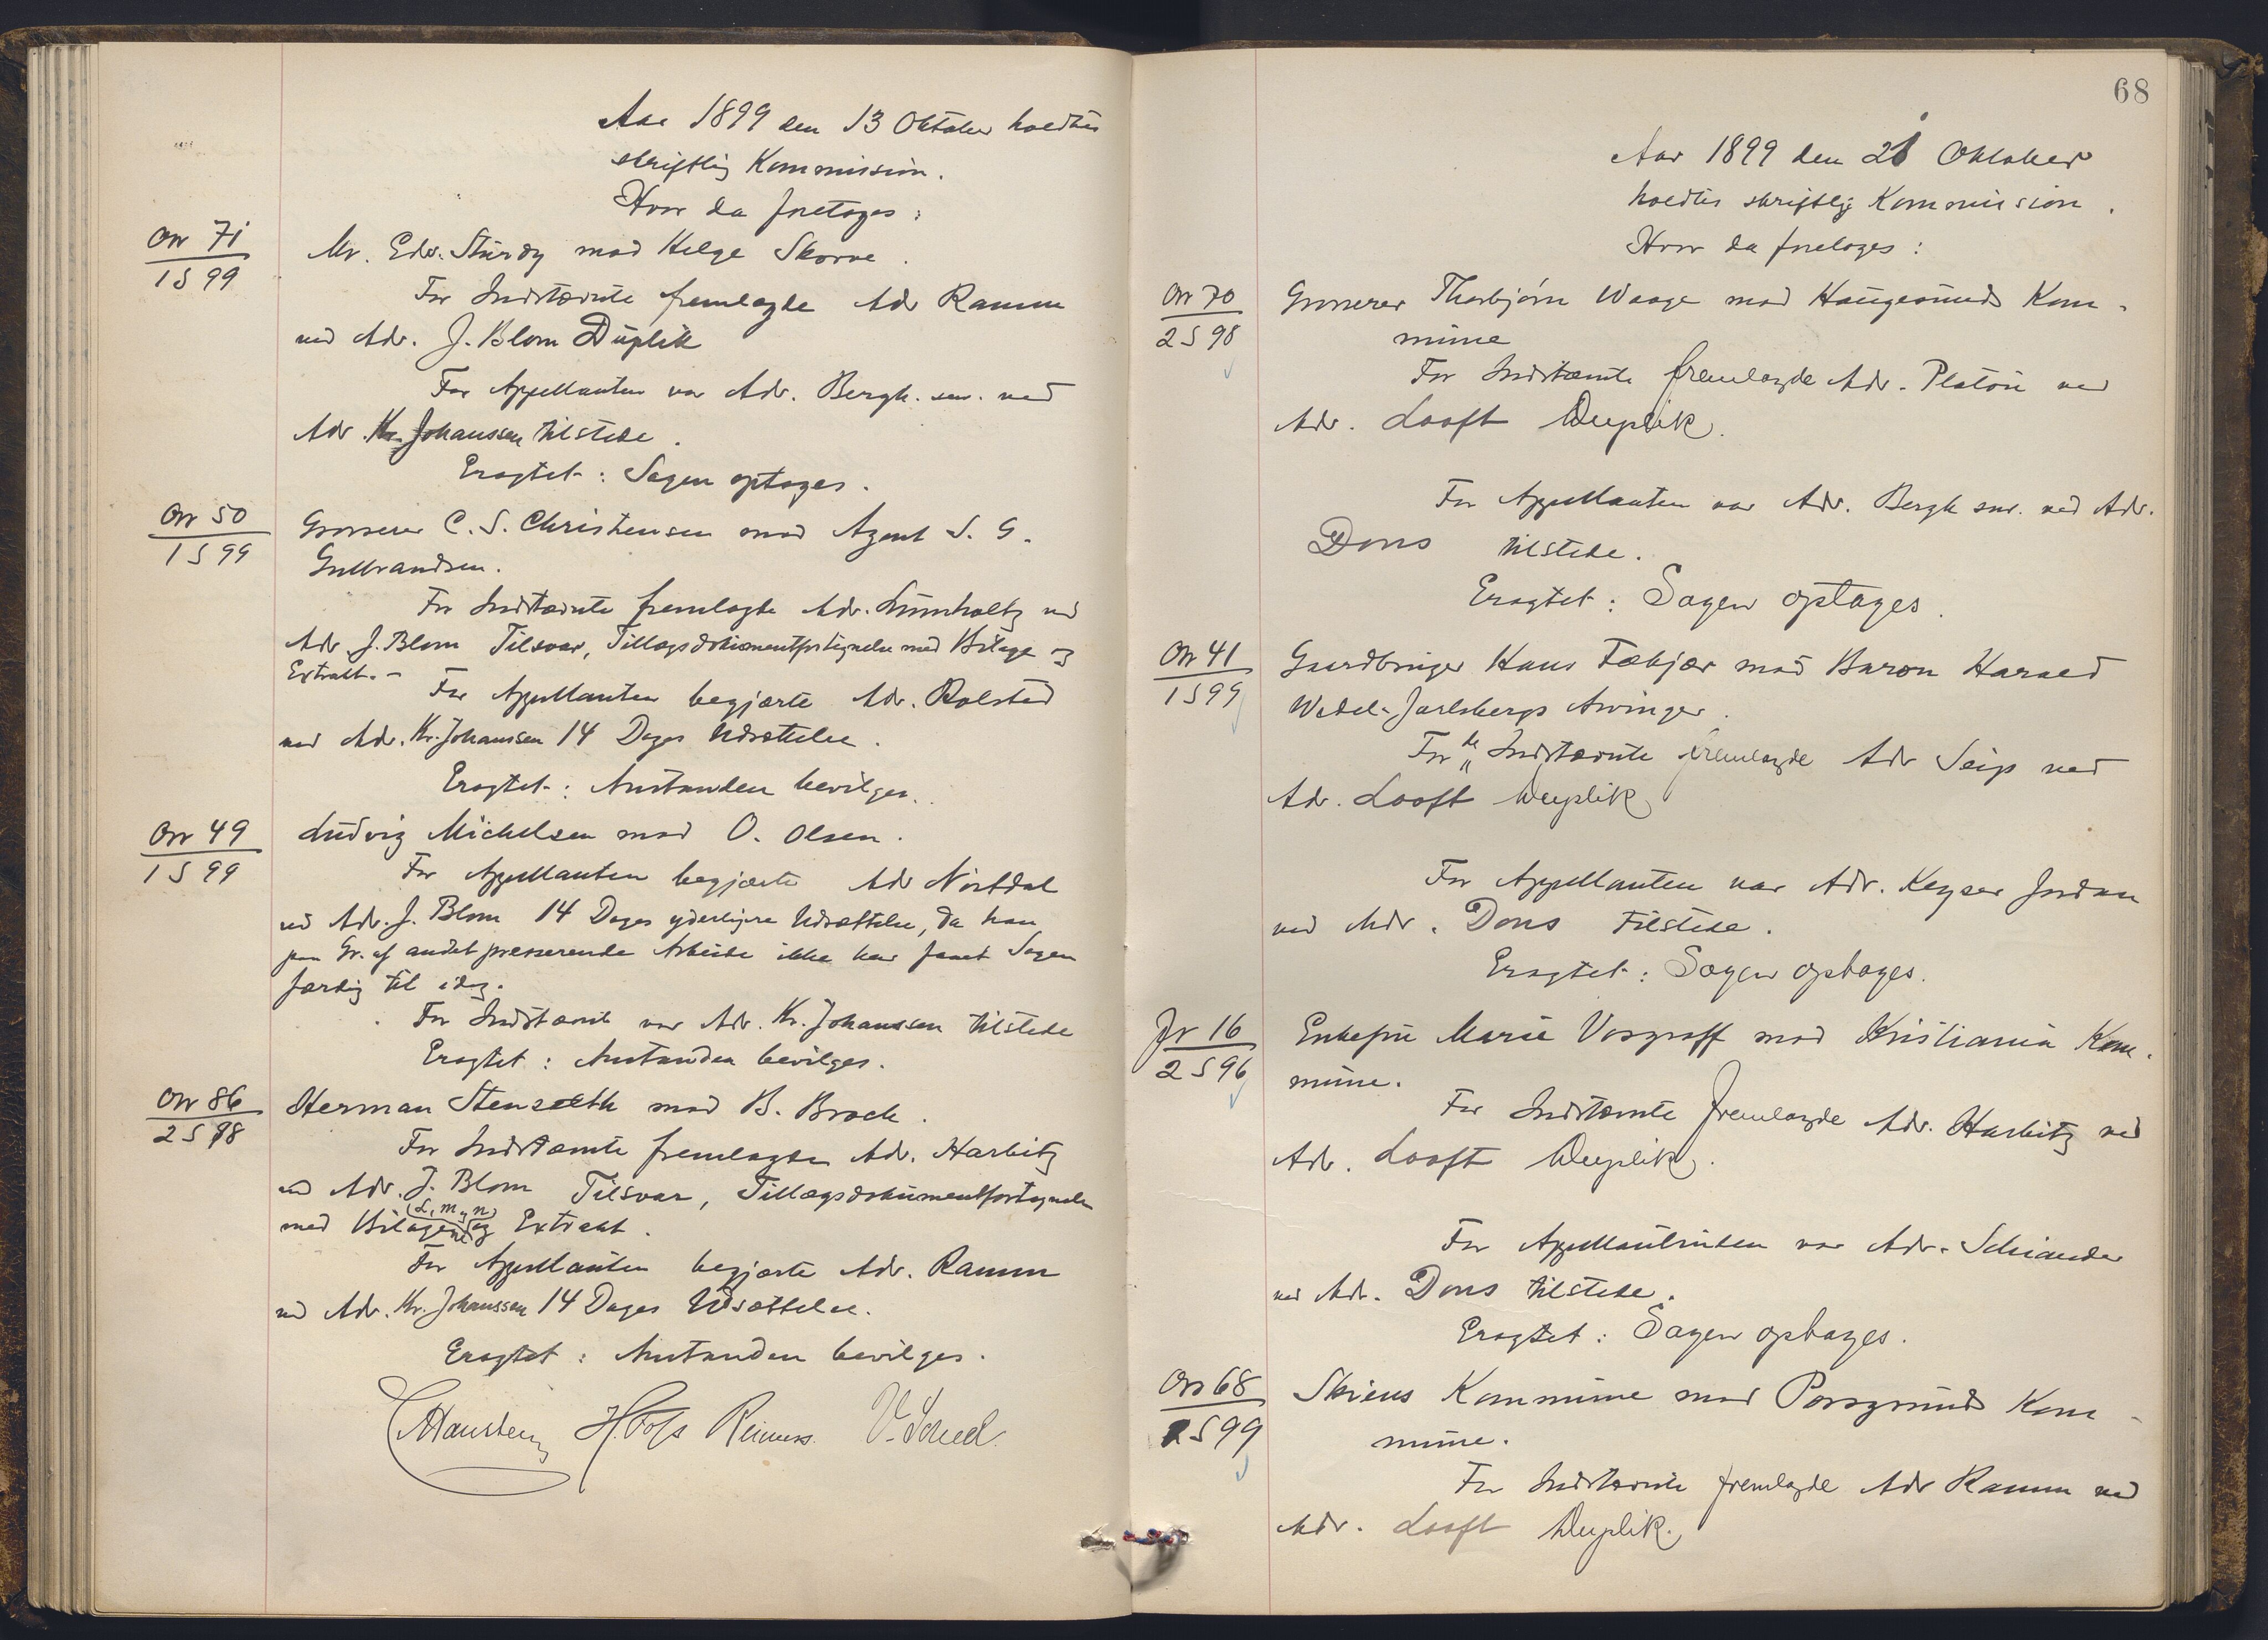 Aar 1899 den 13 Oktober holdtes
skriftlig Kommission.
Hvor da foretoges:
Or 71
1 S 99
Mr. Edw. Sturdy mod Helge Skorve.
For Indstævnte fremlagde Adv Ramm
ved Adv. J. Blom Duplik
For Appellanten var Adv. Bergh. sen. ved
Adv. Kr. Johanssen tilstede.
Eragtet: Sagen optages.
Or 50
1 S 99
Grosserer C. S. Christensen mod Agent S. G.
Gulbrandsen.
For Indstævnte fremlagde Adv. Lumholtz ved
Adv. J. Blom Tilsvar, Tillægsdokumentfortegnelse med Bilage og
Extrakt.-
For Appellanten begjærte Adv. Rolsted
ved Adv. Kr. Johanssen 14 Dages Udsættelse.
Eragtet: Anstanden bevilges.
Or 49
1 S 99
Ludvig Michelsen mod O. Olsen.
For Appellanten begjærte Adv Nordal
ved Adv. J. Blom 14 Dages yderligere Udsættelse, da han
paa Gr. af andet presserende Arbeide ikke har faaet Sagen
færdig til idag.
For Indstævnte var Adv. Kr. Johanssen tilstede
Eragtet: Anstanden bevilges.
Or 86
2 S 98
Herman Stenseth mod B. Brock.
For Indstævnte fremlagde Adv. Harbitz
ved Adv. J. Blom Tilsvar, Tillægsdokumentfortegnelse
(L, M, N)
med Bilagene og Extrakt.
For Appellanten begjærte Adv. Ramm
ved Adv. Kr. Johanssen 14 Dages Udsættelse.
Eragtet: Anstanden bevilges.
Reimers.
68
Aar 1899 den 21 Oktober
holdtes skriftlig Kommission.
Hvor da foretoges:
Or 70
2 S 98
Grosserer Thorbjørn Waage mod Haugesunds Kom-
mune
For Indstævnte fremlagde Adv. Platou ved
Adv. Looft Duplik.
For Appellanten var Adv. Bergh snr. ved Adv.
Dons tilstede.
Eragtet: Sagen optages.
Or 41
1 S 99
Gaardbruger Hans Fæhjær mod Baron Harald
Wedel-Jarlsbergs Arvinger.
For de Indstævnte fremlagde Adv Seip ved
Adv. Looft Duplik
For Appellanten var Adv. Keyser Jordan
ved Adv. Dons tilstede.
Eragtet: Sagen optages.
Jr 16
2 S 96
Enkefru Marie Vosgraff mod Kristiania Kom-
mune.
For Indstævnte fremlagde Adv. Harbitz ved
Adv. Looft Duplik.
For Appellantinden var Adv. Schiander
ved Adv. Dons tilstede.
Eragtet: Sagen optages.
Or 68
2 S 99
Skiens Kommune mod Porsgrunds Kom-
mune.
For Indstævnte fremlagde Adv Ramm ved
Adv. Looft Duplik.